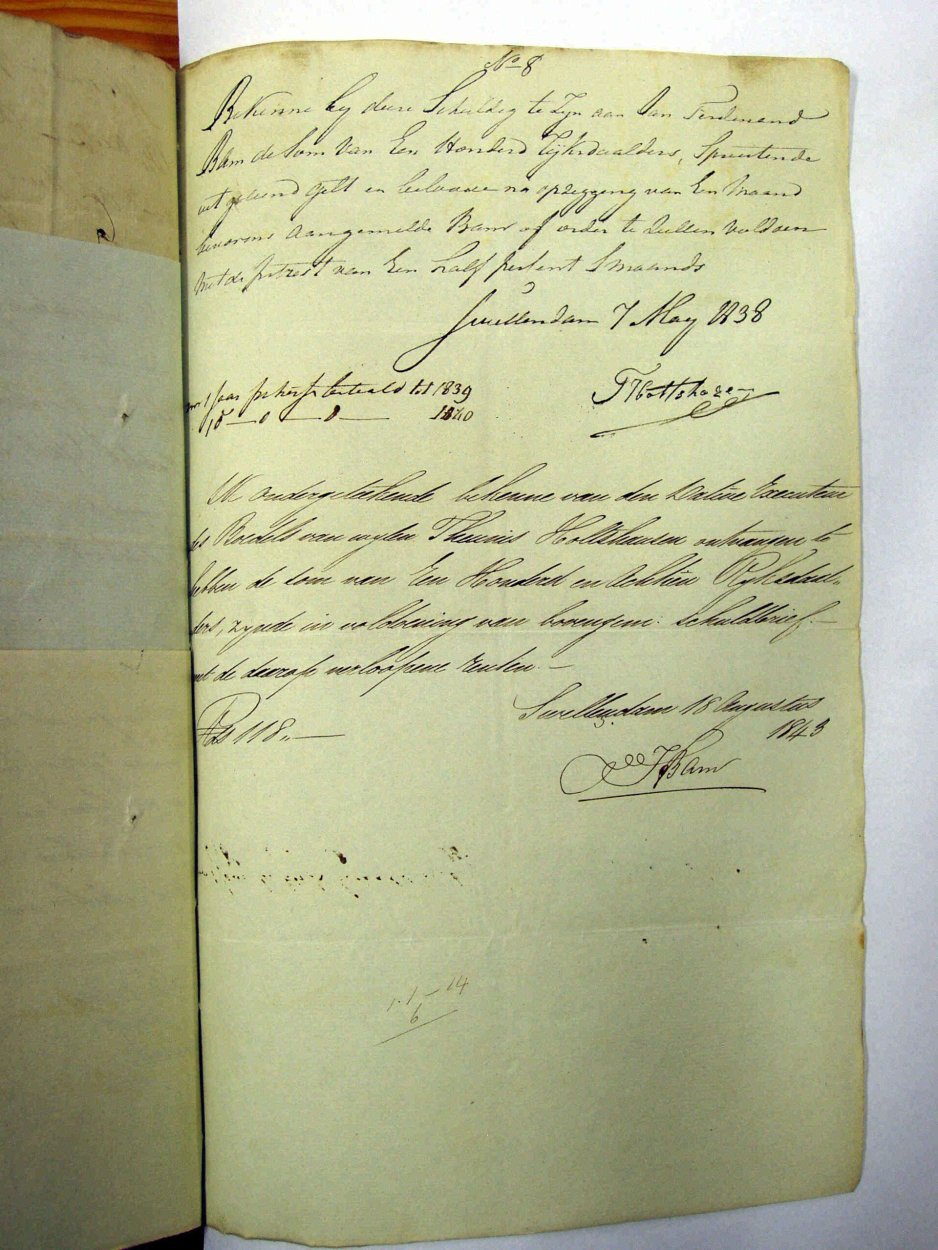 No 8
Bekenne by deese Schuldig te Zyn aan Jan Ferdenand
Bam de Som Van Een Honderd Rijksdaalders, Spruitende
uit geleend Gelt en beloove na opzegging van Een Maand
bevorens Aangemelde Bam of order te Zullen Voldoen
met de Intrest van Een half persent Smaands
Swellendam 7 May 1838
1 Jaar betaald tot 1839
1840
T Holtshozen
Ik ondergeteekende bekenne van den Dative Executeur
des Boedels van wylen Theunis Holtshausen ontvangen te
hebben de som van Een Honderd en Achtien Ryksdaal-
ders, zynde in voldoening van bovengem: Schuldbrief.—
met de daarop verloopene renten.—
Swellendam 18 Augustus
1843
Rds 118,,—
JFBam
1.1—14
6